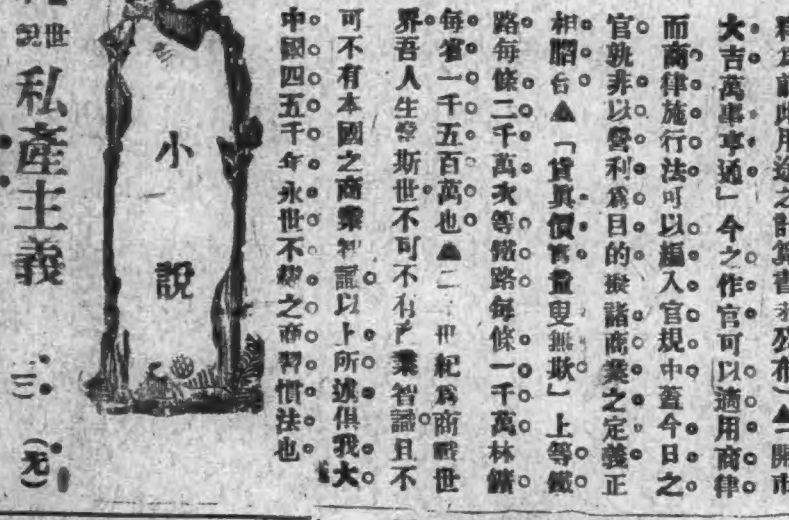 大吉萬事亨通」今之作官可以適用商律
而商律施行法可以編入官規中蓋今日之
官孰非以營利爲目的擬諸商業之定義正
相脗合▲「貨真價實童叟無欺」上等鐵
路每條二千萬次等鐵路每條一千萬林鑛
每省一千五百萬也▲二 世紀爲商戰世
界吾人生當斯世不可不有 業智識且不
可不有本國之商業智識以上所述俱我大
中國四五千年永世不 之商習慣法也
小說
私產主義 二 (无)